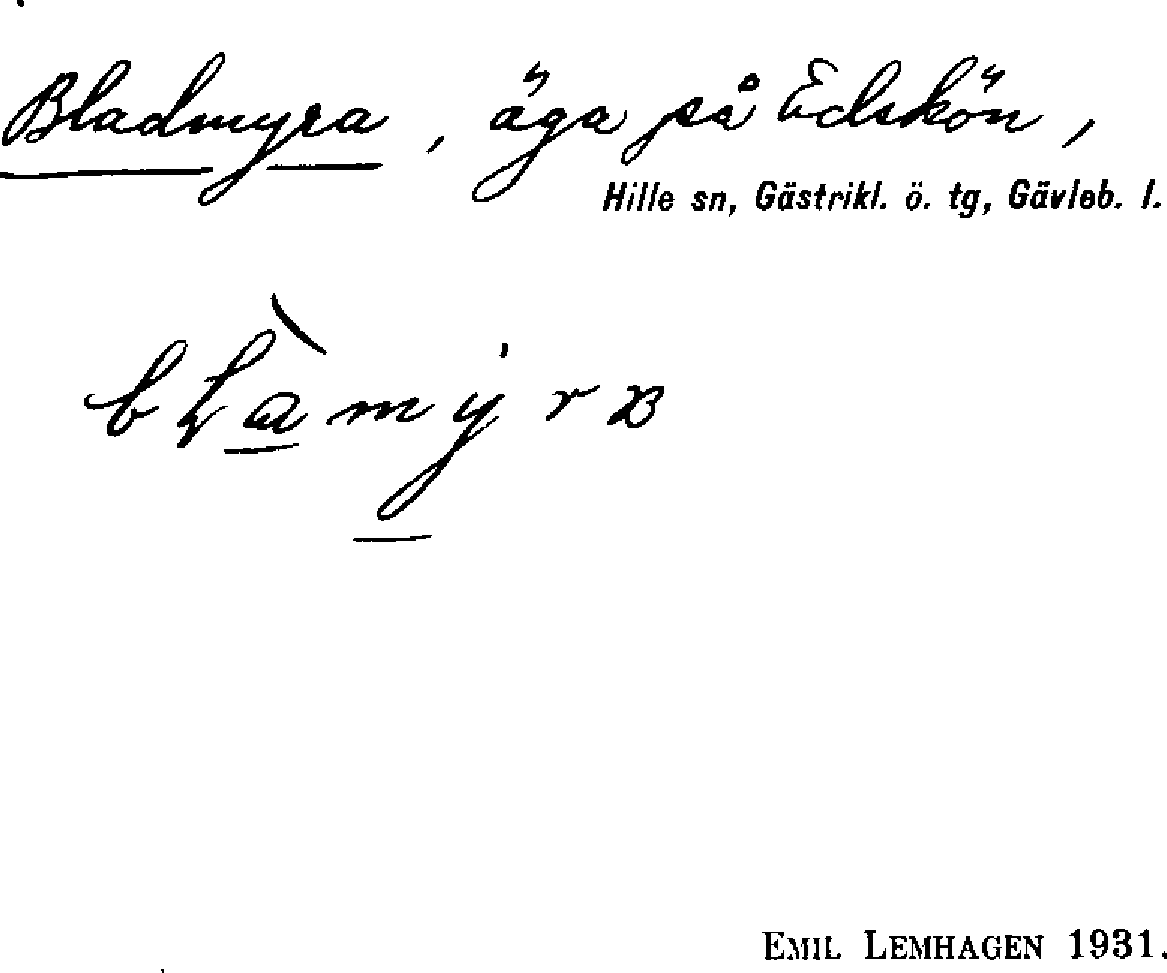 Bladmyra, äga på Edskön,
Hille sn, Gästrikl. ö. tg, Gävleb. l.
EMIL LEMHAGEN 1931.